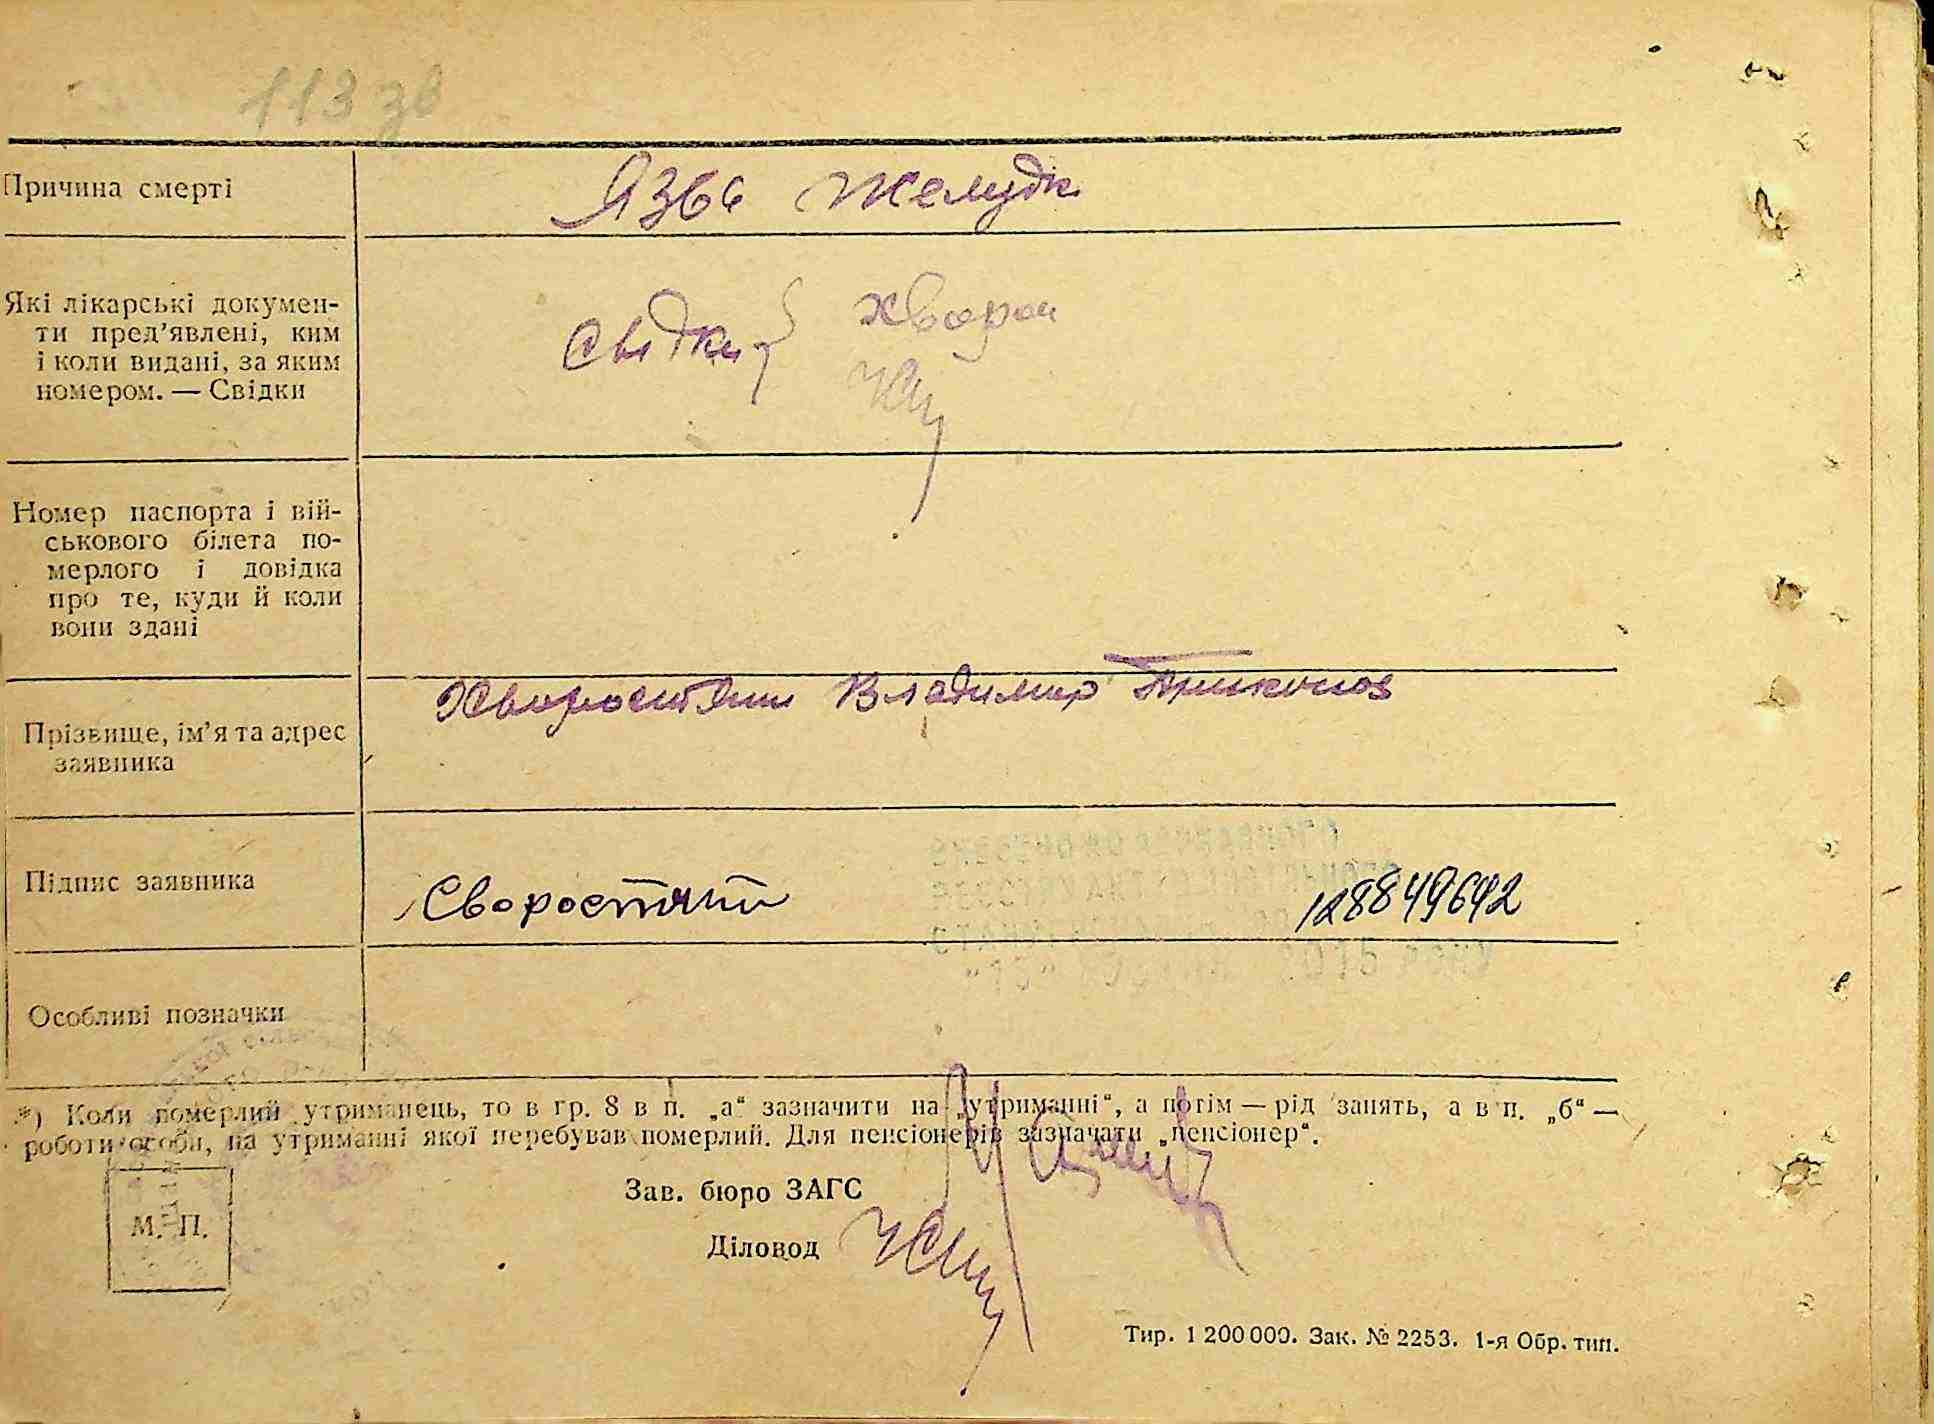 113 зв
Причина смерті
Язва Желудк
Які лікарські докумен-
ти пред’явлені, ким
і коли видані, за яким
номером. — Свідки
Свідки
Номер паспорта і вій-
ськового білета по-
мерлого і довідка
про те, куди й коли
вони здані
Прізвище, ім’я та адрес
заявника
Хворостян Владимир
Підпис заявника
128849642
Особливі позначки
*) Коли померлий утриманець, то в гр. 8 в п. „а“ зазначити на „утриманні“, а потім — рід занять, а в п. „б“ —
роботи особи, на утриманні якої перебував померлий. Для пенсіонерів зазначати „пенсіонер“.
Зав. бюро ЗАГС
М. П.
Діловод
Тир. 1 200 000. Зак. № 2253. 1-я Обр. тип.